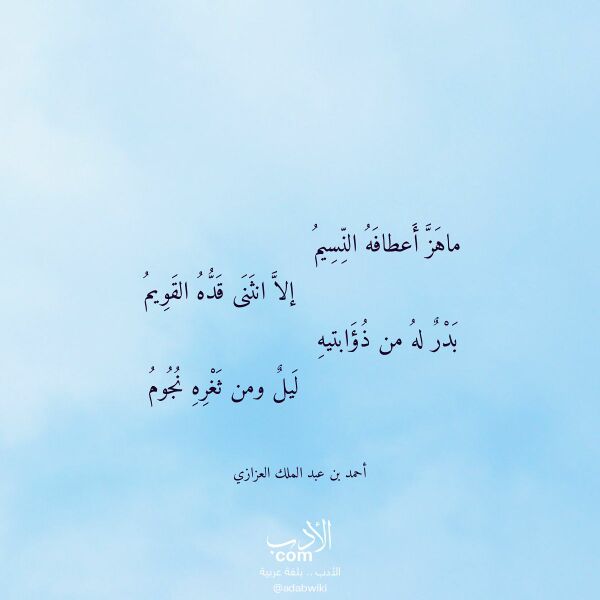 ماهَزَّ أَعطافَهُ النِّسِيمُ
إلاَّ انثَنَى قَدُّهُ القَوِيمُ
بَدْرٌ لهُ من ذُؤَابتيهِ
لَيلٌ ومن ثَغْرِهِ نُجُومُ
أحمد بن عبد الملك العزازي
الأدب
.com
الأدب .. بلغة عربية
@adabwiki